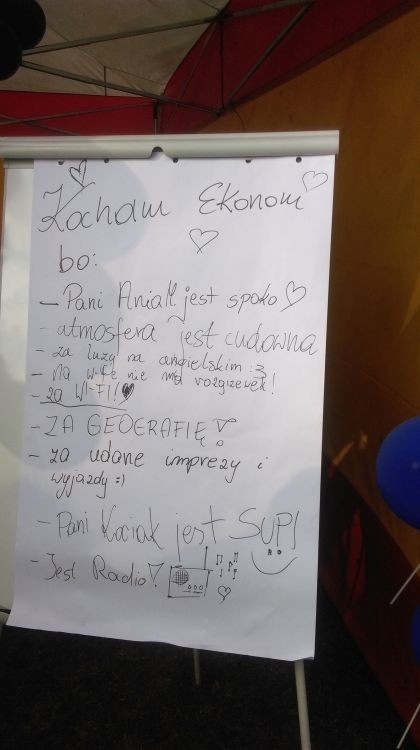 Kocham Ekonom
bo:
- Pani Ania K. jest spoko
- atmosfera jest cudowna
- za luzy na angielskim :3
- Na w-fie nie ma rozgrzewek!
- za WI-FI!
- ZA GEOGRAFIĘ!
- za udane imprezy i
wyjazdy :)
- Pani Kociak jest SUPI
- Jest Radio!